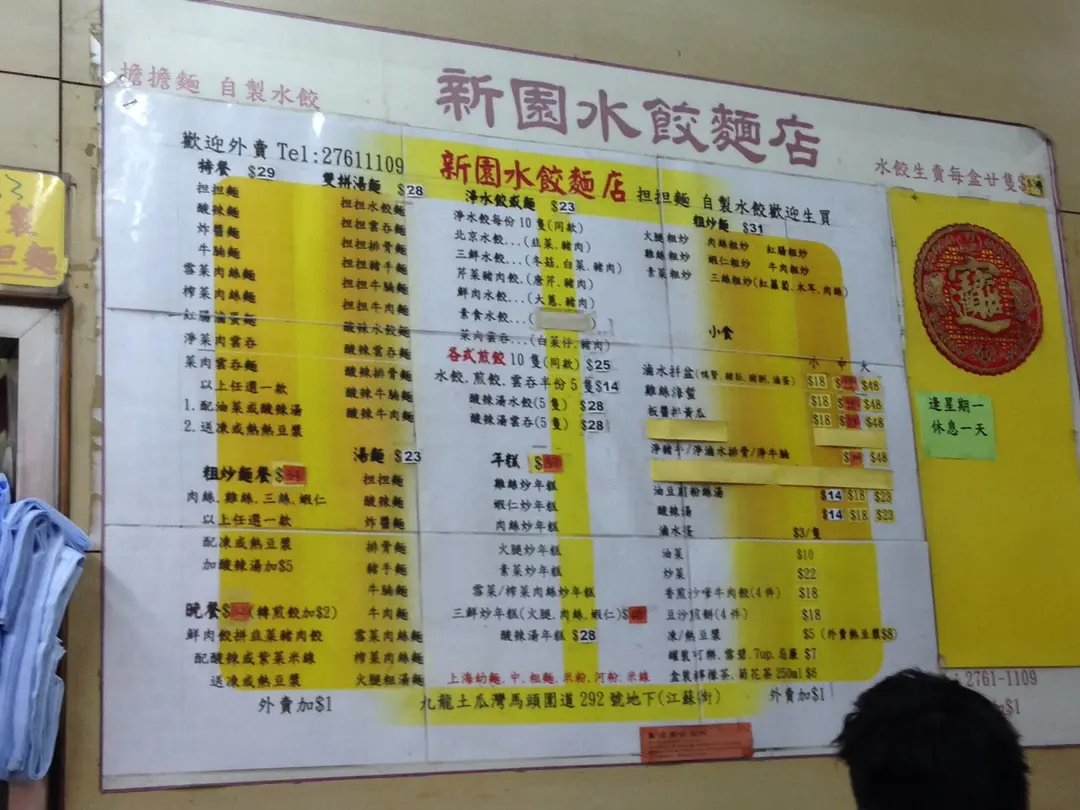 擔擔麵 自製水餃
新園水餃麵店
水餃生賣每盒廿隻
歡迎外賣 Tel:27611109
新園水餃麵店 担担麵 自製水餃歡迎生買
特餐 $29
担担麵
酸辣麵
炸醬麵
牛腩麵
雪菜肉絲麵
榨菜肉絲麵
紅腸滷蛋麵
淨菜肉雲吞
菜肉雲吞麵
以上任選一款
1.配油菜或酸辣湯
2.送凍或熱熱豆漿
粗炒麵餐
肉絲.雞絲.三絲.蝦仁
以上任選一款
配凍或熱豆漿
加酸辣湯加$5
晚餐 (轉煎餃加$2)
鮮肉餃拼韭菜豬肉餃
配酸辣或紫菜米線
送凍或熱豆漿
外賣加$1
雙拼湯麵 $28
担担水餃麵
担担雲吞麵
担担排骨麵
担担豬手麵
担担牛腩麵
担担牛肉麵
酸辣水餃麵
酸辣雲吞麵
酸辣排骨麵
酸辣牛腩麵
酸辣牛肉麵
湯麵 $23
担担麵
酸辣麵
炸醬麵
排骨麵
豬手麵
牛腩麵
牛肉麵
雪菜肉絲麵
榨菜肉絲麵
火腿粗湯麵
淨水餃或麵 $23
淨水餃每份10隻(同款)
北京水餃...(韭菜.豬肉)
三鮮水餃...(冬菇.白菜.豬肉)
芹菜豬肉餃.(唐芹.豬肉)
鮮肉水餃...(大蔥.豬肉)
素食水餃...(
菜肉雲吞...(白菜仔.豬肉)
各式煎餃10隻(同款) $25
水餃.煎餃.雲吞半份5隻$14
酸辣湯水餃(5隻) $28
酸辣湯雲吞(5隻) $28
年糕
雞絲炒年糕
蝦仁炒年糕
肉絲炒年糕
火腿炒年糕
素菜炒年糕
雪菜/榨菜肉絲炒年糕
三鮮炒年糕(火腿.肉絲.蝦仁)
酸辣湯年糕 $28
上海幼麵.中.粗麵.米粉.河粉.米線
九龍土瓜灣馬頭圍道292號地下(江蘇街)
粗炒麵 $31
火腿粗炒 肉絲粗炒 紅腸粗炒
雞絲粗炒 蝦仁粗炒 牛肉粗炒
素菜粗炒 三絲粗炒(紅蘿蔔.木耳.肉絲)
小食
小 中 大
滷水拼盆 $18 $48
雞絲海蜇 $18 $48
板醬拼黃瓜 $18 $48
淨豬手/淨滷水排骨/淨牛腩 $48
油豆腐粉絲湯 $14 $18 $23
酸辣湯 $14 $18 $23
滷水蛋 $3/隻
油菜 $10
炒菜 $22
香煎沙嗲牛肉餃(4件) $18
豆沙煎餅(4件) $18
凍/熱豆漿 $5 (外賣熱豆漿$8)
罐裝可樂.雪碧.7up.忌廉 $7
盒裝檸檬茶.菊花茶250ml $6
外賣加$1
逢星期一
休息一天
: 2761-1109
$1